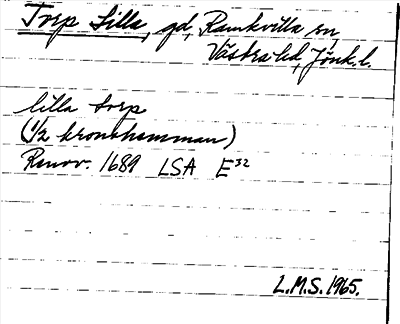 Torp Lilla, gd, Ramkvilla sn,
Västra hd, Jönk.l.
lilla torp
(1/2 kronohemman)
Renov. 1689 LSA E32
L.M.S. 1965.